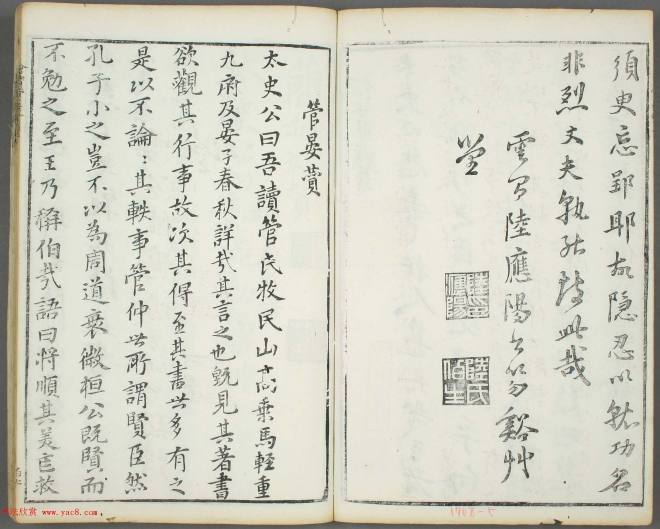 須臾忘郢耶故隐忍以就功名
非烈丈夫孰能致此哉
雲間陸應陽書於勿谿艸
堂
管晏贊
太史公曰吾讀管氏牧民山高乗馬輕重
九府及晏子春秋詳哉其言之也既見其著書
欲觀其行事故次其傳至其書世多有之
是以不論:其軼事管仲世所謂賢臣然
孔子小之豈不以為周道衰微桓公既賢而
不勉之至王乃稱伯哉語曰将順其美匡救
1708-5
书法欣赏 www.yac8.com